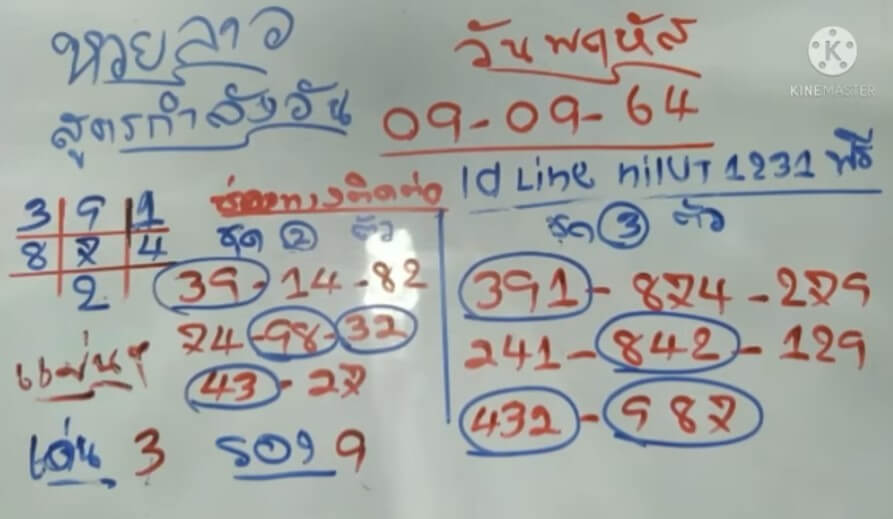 หวยลาว วันพฤหัส
สูตรกำลังวัน 09-09-64
KINEMASTER
ช่องทางติดต่อ Id Line nilUT1231 ฟรี
3 9 1
8 7 4
2
ชุด 2 ตัว
39-14-82
74-98-32
43-27
ชุด 3 ตัว
391-874-279
241-842-129
432-987
แม่นๆ
เด่น 3 รอง 9